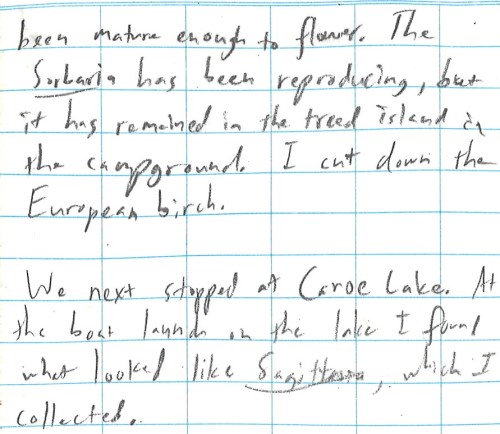 been mature enough to flower. The
Sorbaria has been reproducing, but
it has remained in the treed island in
the campground. I cut down the
European birch.
We next stopped at Canoe Lake. At
the boat launch on the lake I found
what looked like Sagittaria, which I
collected.